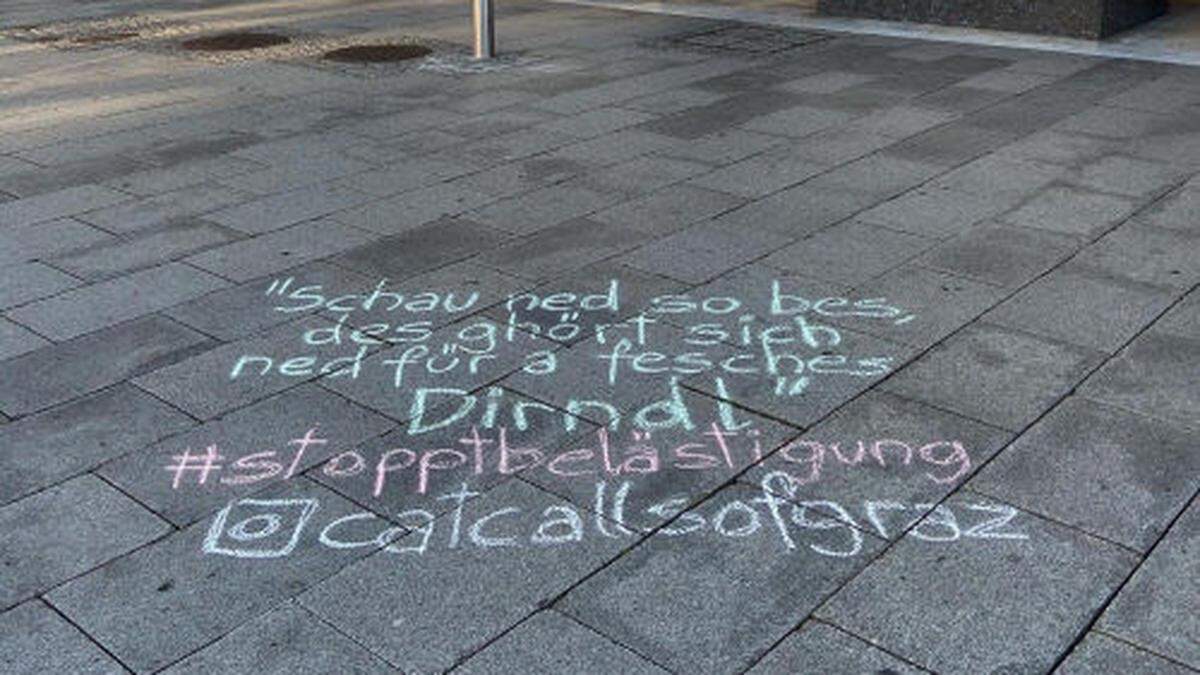 "Schau ned so bes,
des ghört sich
ned für a fesches
Dirndl"
#stopptbelästigung
catcallsofgraz